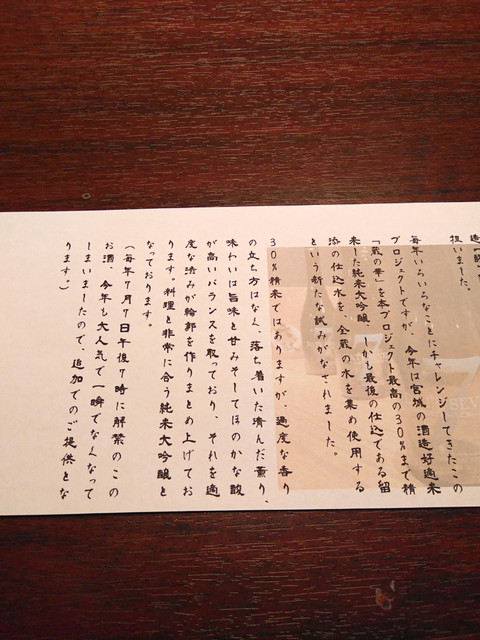 担いました。
毎年いろいろなことにチャレンジしてきたこの
プロジェクトですが、今年は宮城の酒造好適米
「蔵の華」を本プロジェクト最高の30%まで精
米した純米大吟醸、しかも最後の仕込である留
添の仕込水を、全蔵の水を集め使用する
という新たな試みがなされました。
30%精米ではありますが、過度な香り
の立ち方はなく、落ち着いた澄んだ薫り、
味わいは旨味と甘みそしてほのかな酸
が高いバランスを取っており、それを適
度な渋みが輪郭を作りまとめ上げてお
ります。料理と非常に合う純米大吟醸と
なっております。
(毎年7月7日午後7時に解禁のこの
お酒、今年も大人気で一瞬でなくなって
しまいましたので、追加でのご提供とな
ります。)